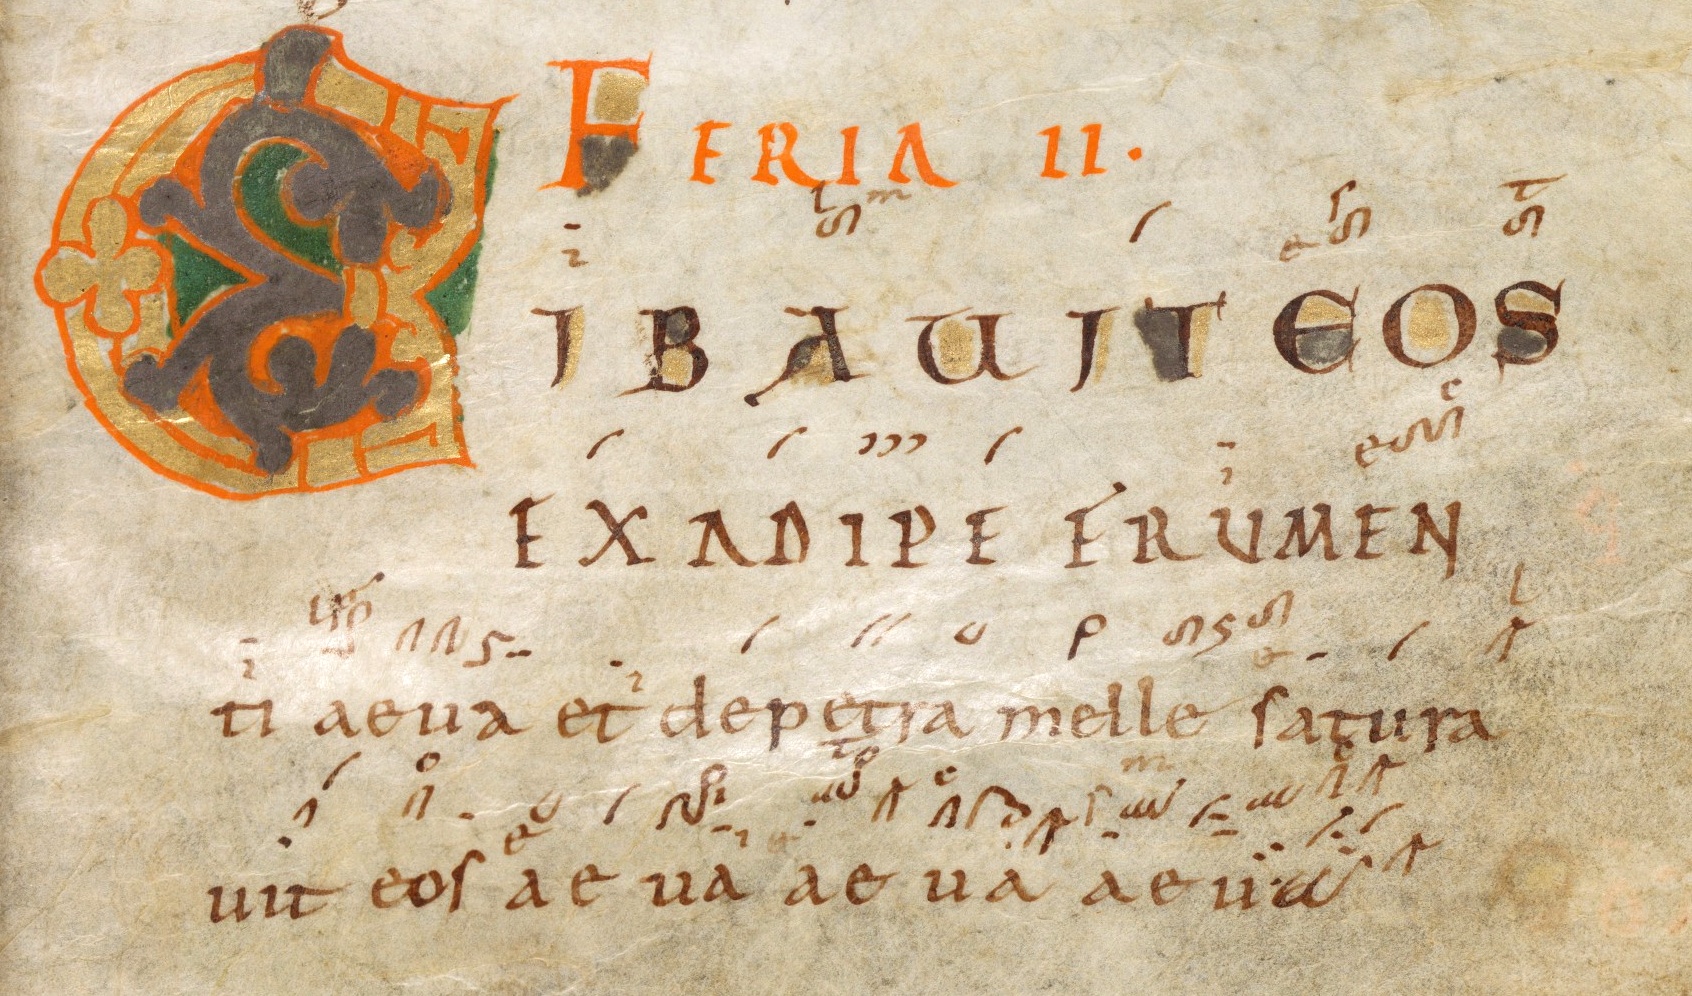 FERIA II.
CIBAUIT EOS
EX ADIPE FRUMEN
ti aeua et depetra melle satura
uit eos aeua aeua aeua